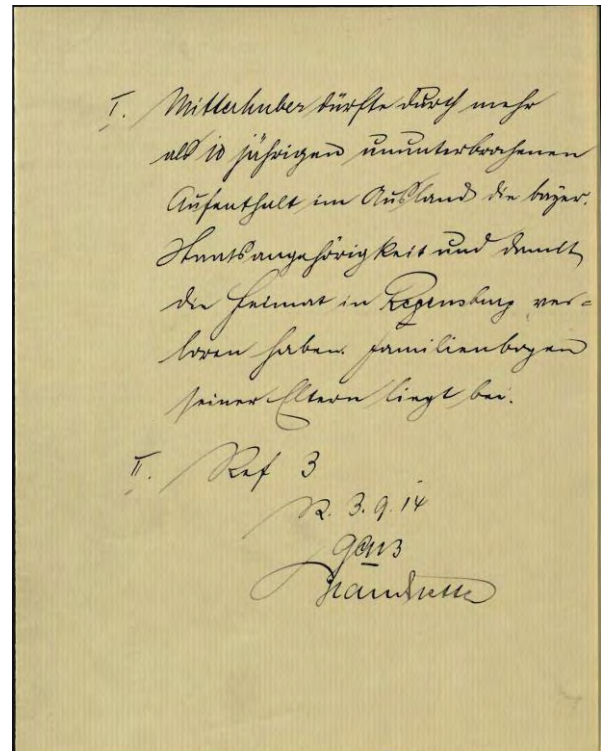 I. Mitterhuber dürfte durch mehr
als 10 jährigen ununterbrochenen
Aufenthalt im Ausland die bayer.
Staatsangehörigkeit und damit
die Heimat in Regensburg ver=
loren haben. Familienbogen
seiner Eltern liegt bei.
II. Ref 3
R. 3.9.14